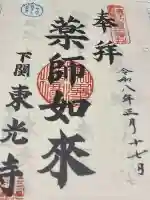 奉拝
令和八年三月十七日
薬師如来
下関
東光寺